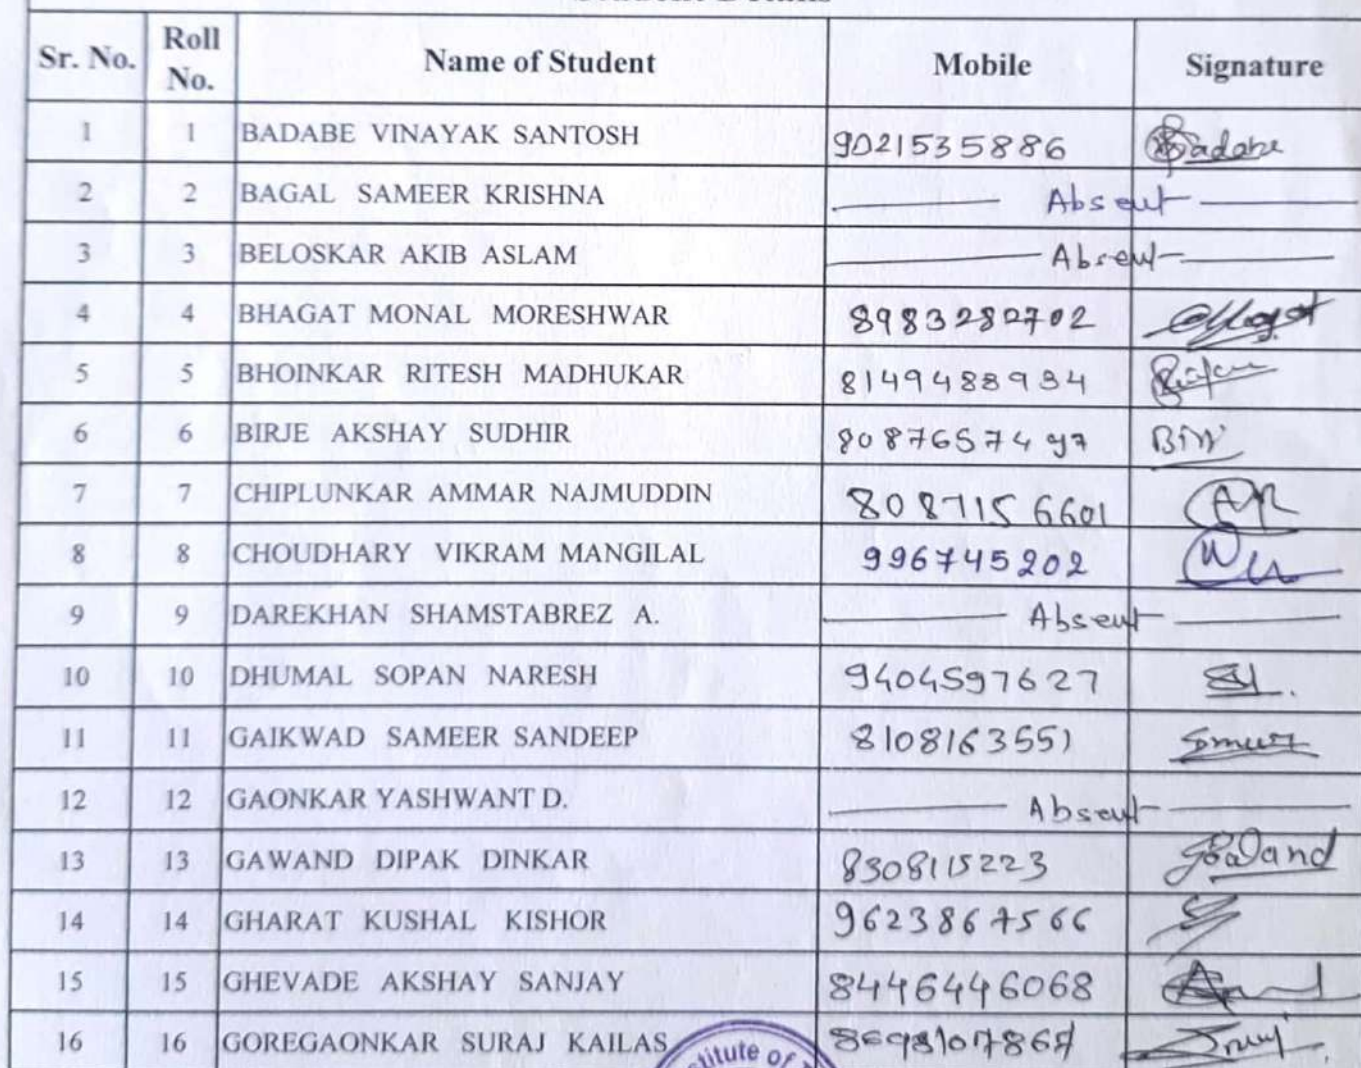 Sr. No. Roll No. Name of Student Mobile Signature
1 1 BADABE VINAYAK SANTOSH 9021535886 Badabe
2 2 BAGAL SAMEER KRISHNA Absent
3 3 BELOSKAR AKIB ASLAM Absent
4 4 BHAGAT MONAL MORESHWAR 8983282702
5 5 BHOINKAR RITESH MADHUKAR 8149488934
6 6 BIRJE AKSHAY SUDHIR 8087657497
7 7 CHIPLUNKAR AMMAR NAJMUDDIN 8087156601
8 8 CHOUDHARY VIKRAM MANGILAL 996745202
9 9 DAREKHAN SHAMSTABREZ A. Absent
10 10 DHUMAL SOPAN NARESH 9404597627
11 11 GAIKWAD SAMEER SANDEEP 8108163551
12 12 GAONKAR YASHWANT D. Absent
13 13 GAWAND DIPAK DINKAR 8308115223 Gawand
14 14 GHARAT KUSHAL KISHOR 9623867566
15 15 GHEVADE AKSHAY SANJAY 8446446068
16 16 GOREGAONKAR SURAJ KAILAS
stitute of